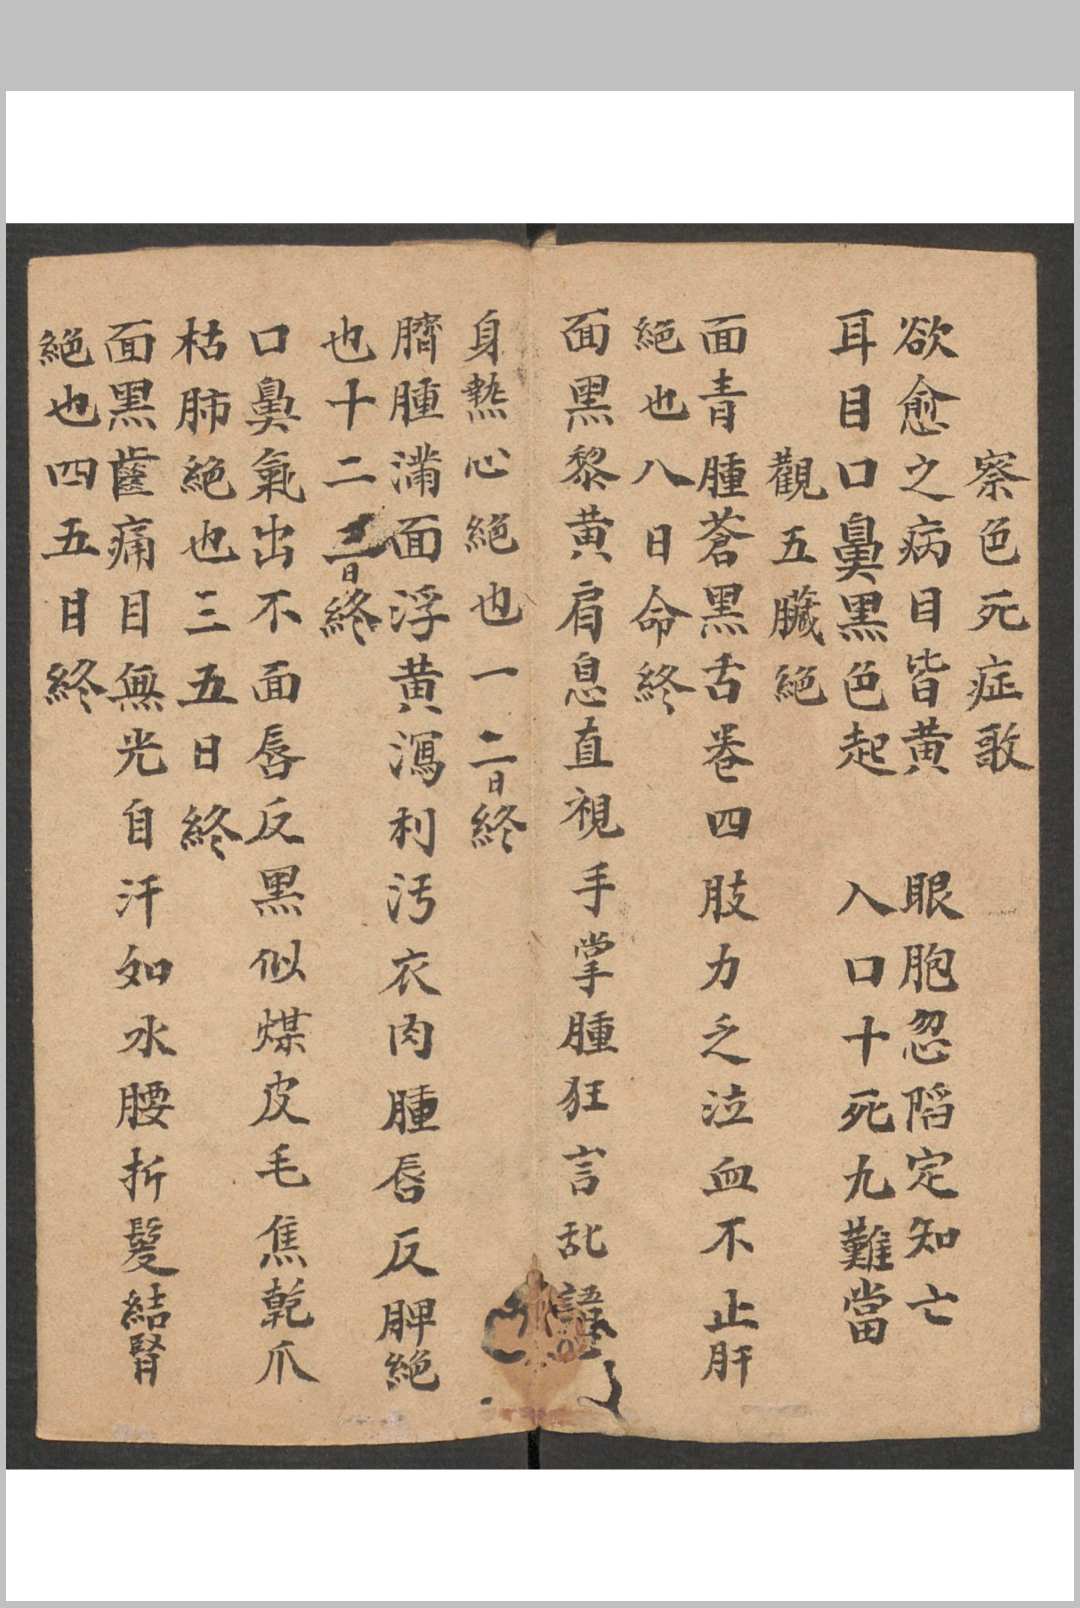 察色死症歌
欲愈之病目皆黄　眼胞忽陷定知亡
耳目口鼻黑色起　入口十死九難當
觀五臟絕
面青腫蒼黑舌卷四肢力乏泣血不止肝
絕也八日命終
面黑黎黄肩息直視手掌腫狂言乱語
身热心絕也一二日終
臍腫滿面浮黄瀉利污衣肉腫唇反脾絕
也十二三日終
口鼻氣出不面唇反黑似煤皮毛焦乾爪
枯肺絕也三五日終
面黑齒痛目無光自汗如水腰折髮結腎
絕也四五日終